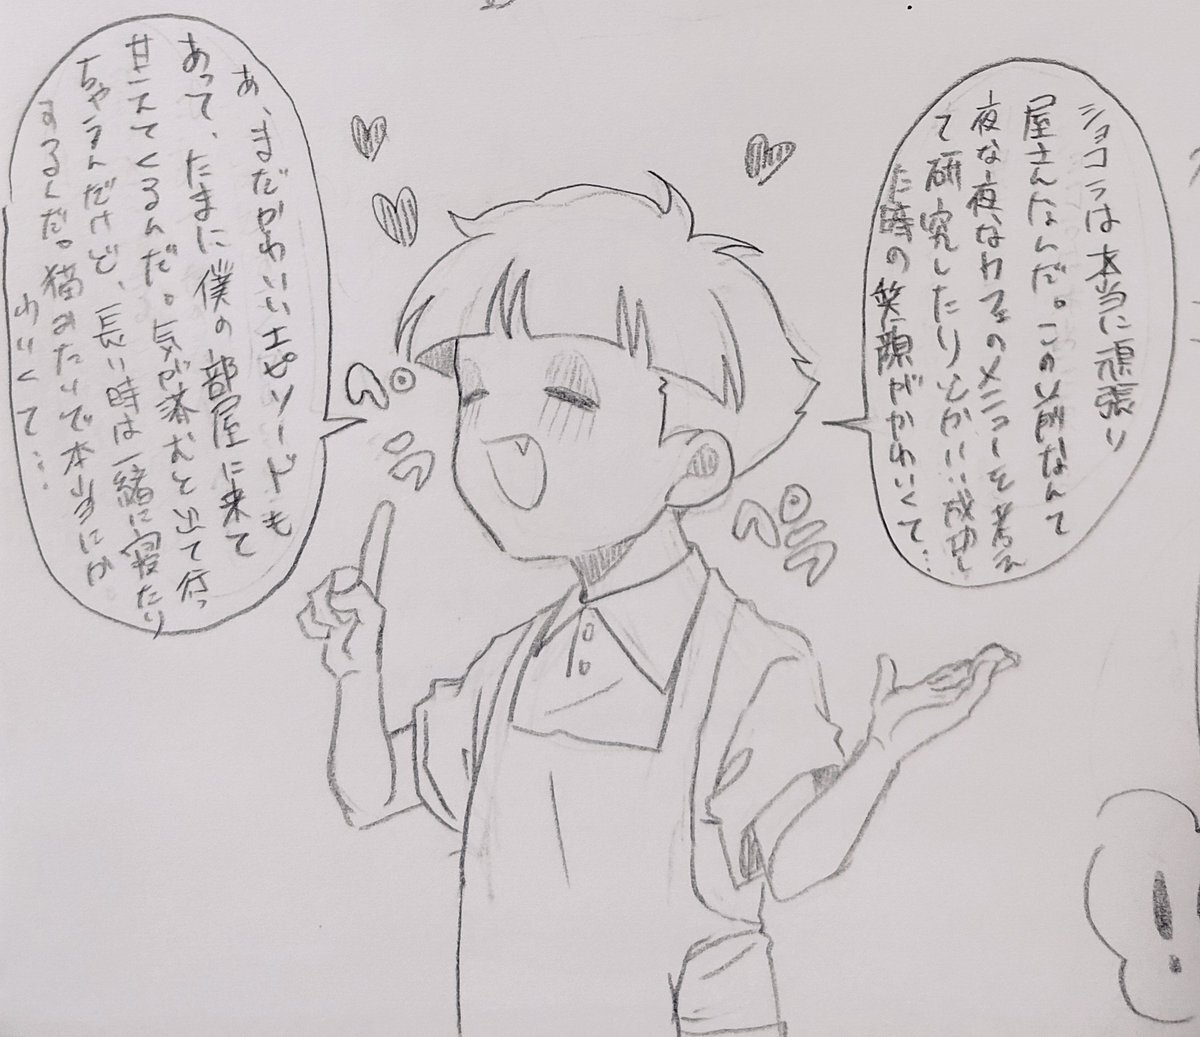 ショコラは本当に頑張り
屋さんなんだ。この以前なんて
夜な夜なカフェのメニューを考え
て研究したりとかいい成功し
た時の笑顔がかわいくて…
あ、まだかわいいエピソードも
あって、たまに僕の部屋に来て
甘えてくるんだ。気が済むと出て行っ
ちゃうんだけど、長い時は一緒に寝たり
するんだ。猫みたいで本当にか
わいくて…
ペラ
ペラ